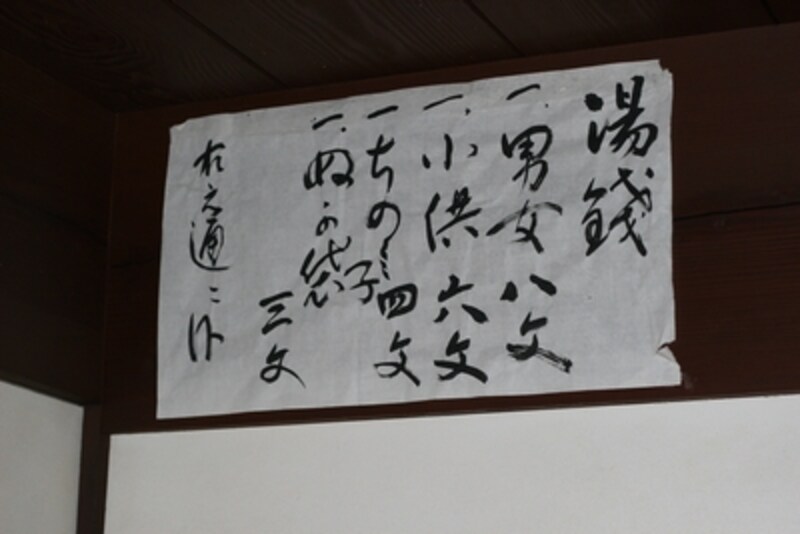 湯銭
一、男女 八文
一、小供 六文
一、ちのミ子 四文
一、ぬか袋
三文
右之通ニ